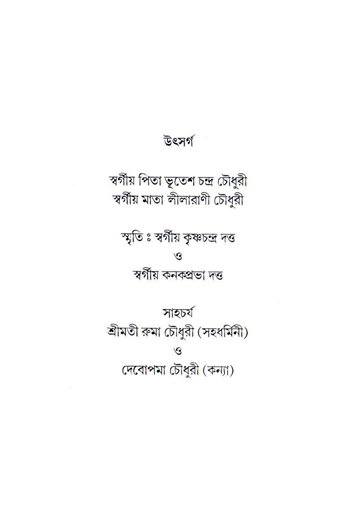 উৎসর্গ
স্বর্গীয় পিতা ভূতেশ চন্দ্র চৌধুরী
স্বর্গীয় মাতা লীলারাণী চৌধুরী
স্মৃতি ঃ স্বর্গীয় কৃষ্ণচন্দ্র দত্ত
ও
স্বর্গীয় কনকপ্রভা দত্ত
সাহচর্য
শ্রীমতী রুমা চৌধুরী (সহধর্মিনী)
ও
দেবোপমা চৌধুরী (কন্যা)